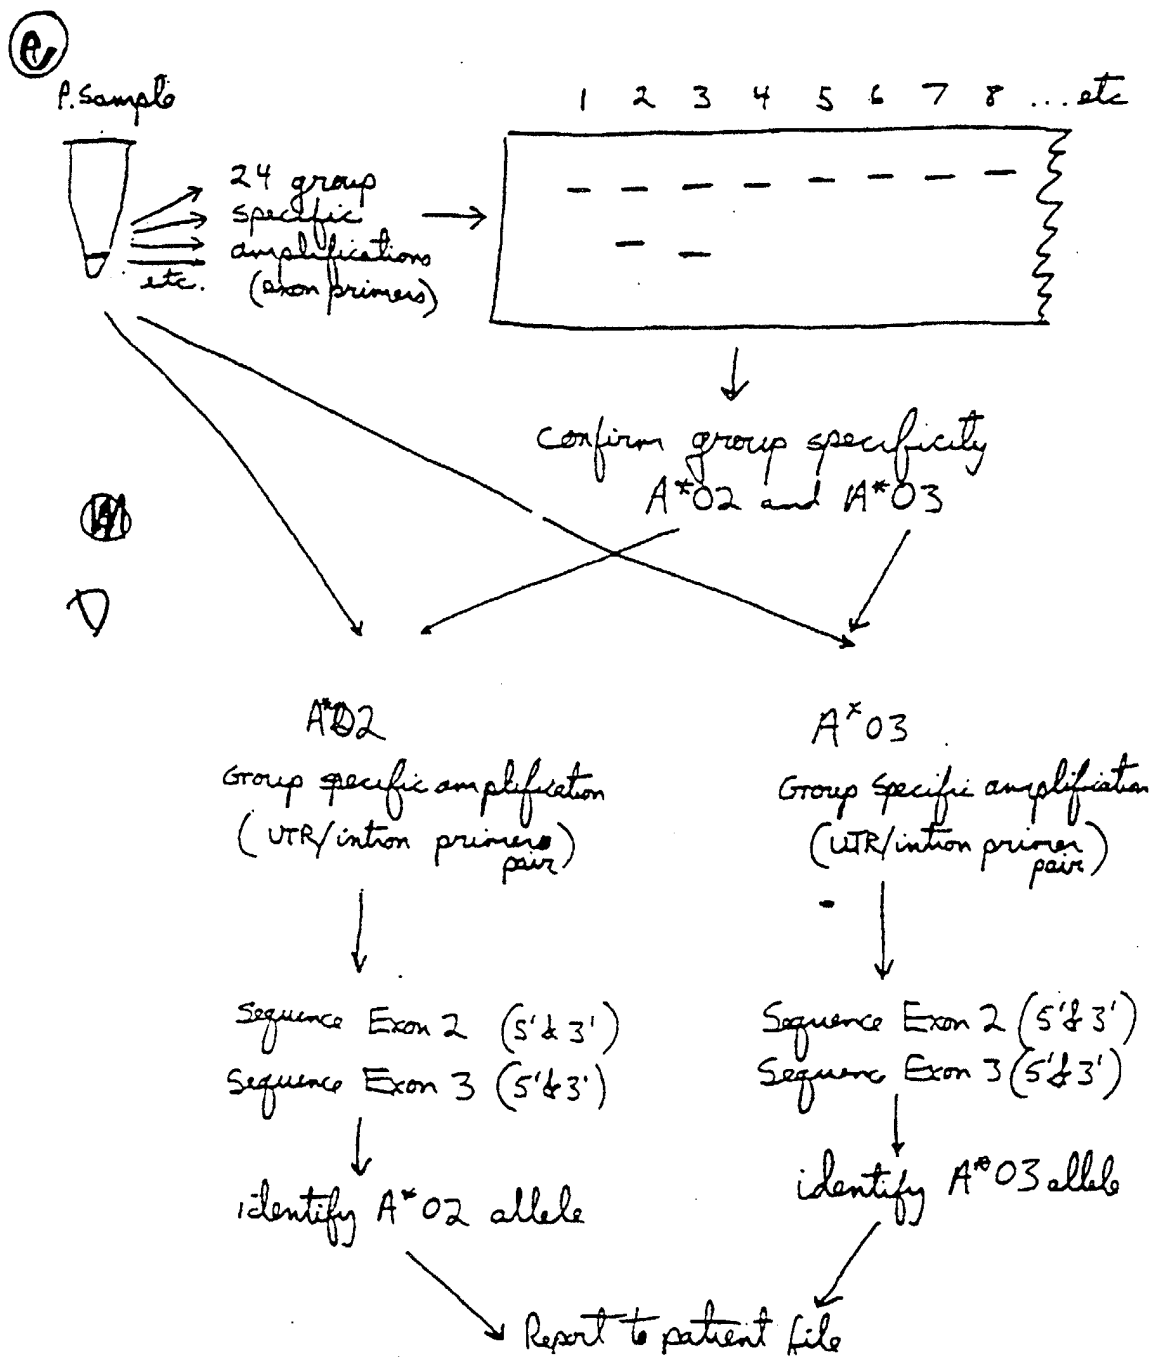 P. Sample
1 2 3 4 5 6 7 8 ... etc
24 group
specific
amplifications
(exon primers)
etc.
confirm group specificity
A*02 and A*03
A*02
Group specific amplification
(UTR/intron primers
pair)
Sequence Exon 2 (5'& 3')
Sequence Exon 3 (5'& 3')
identify A*02 allele
A*03
Group Specific amplification
(UTR/intron primer
pair)
Sequence Exon 2 (5'& 3')
Sequence Exon 3 (5'& 3')
identify A*03 allele
Report to patient file